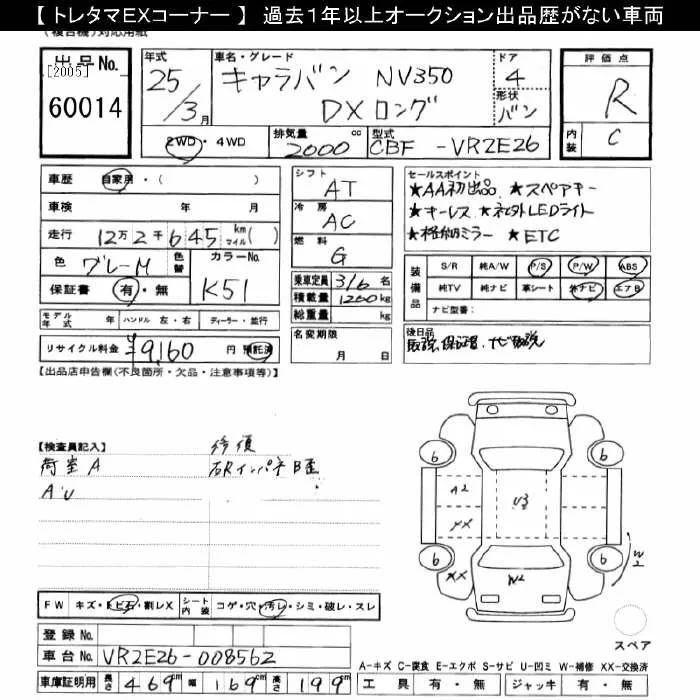 【 トレタマEXコーナー 】 過去1年以上オークション出品歴がない車両
(複合機)対応用紙
出品No.
[2005]
60014
年式
25/3月
車名・グレード
キャラバン NV350
DXロング
ドア
4
形状
バン
評価点
R
内装
C
2WD・4WD
排気量
2000cc
型式
CBF-VR2E26
車歴 自家用・( )
車検 年 月
走行 12万2千645 km マイル( )
色 グレーM
色替
カラーNo.
K51
保証書 有・無
モデル年式 年 ハンドル 左・右 ディーラー・並行
リサイクル料金 ¥9,160円 預託済
シフト
AT
冷房
AC
燃料
G
乗車定員 3/6名
積載量 1200kg
総重量 kg
名変期限
月 日
セールスポイント
★AA初出品 ★スペアキー
★キーレス ★ネオトLEDライト
★格納ミラー ★ETC
装備品
S/R 純A/W P/S P/W ABS
純TV 純ナビ 革シート 社ナビ エアB
ナビ型番:
後日品
取説、保証書、ナビ取説
【出品店申告欄(不良箇所・欠品・注意事項等)】
【検査員記入】
修復
荷室A
右Rインパネ B歪
AU
6
6
A2
XX
U3
6
6
XX
W2
W2
スペア
FW キズ・トビ石・割レX
シート内装 コゲ・穴・汚レ・シミ・破レ・スレ
登録No.
車台No. VR2E26-008562
車庫証明用 長さ 469cm 幅 169cm 高さ 199cm
A-キズ C-腐食 E-エクボ S-サビ U-凹ミ W-補修 XX-交換済
工具 有・無 ジャッキ 有・無